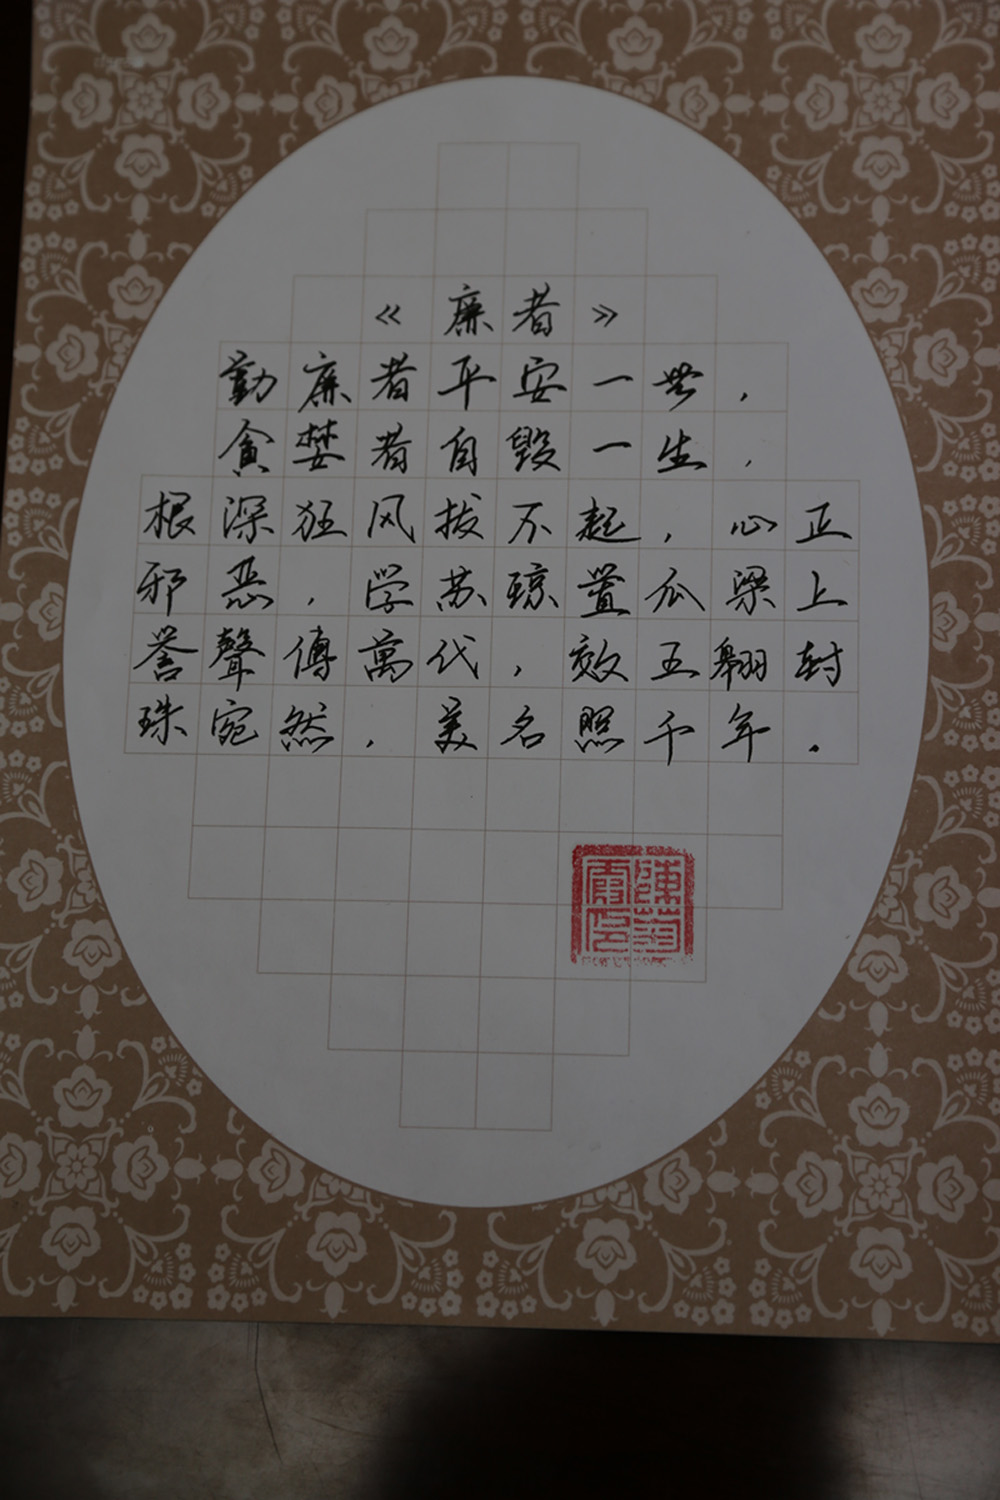 《廉者》
勤廉者平安一世，
贪婪者自毁一生，
根深狂风拔不起，心正
邪恶，学苏琼置瓜梁上
誉聲傳萬代，效五翱封
珠宛然，美名照千年．